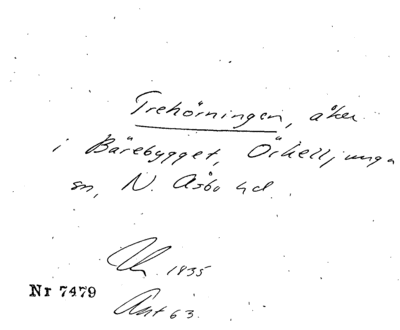 Trehörningen, åker
i Bärebygget, Örkelljunga
sn, N. Åsbo hd.
1835
Nr 7479
Akt 63.